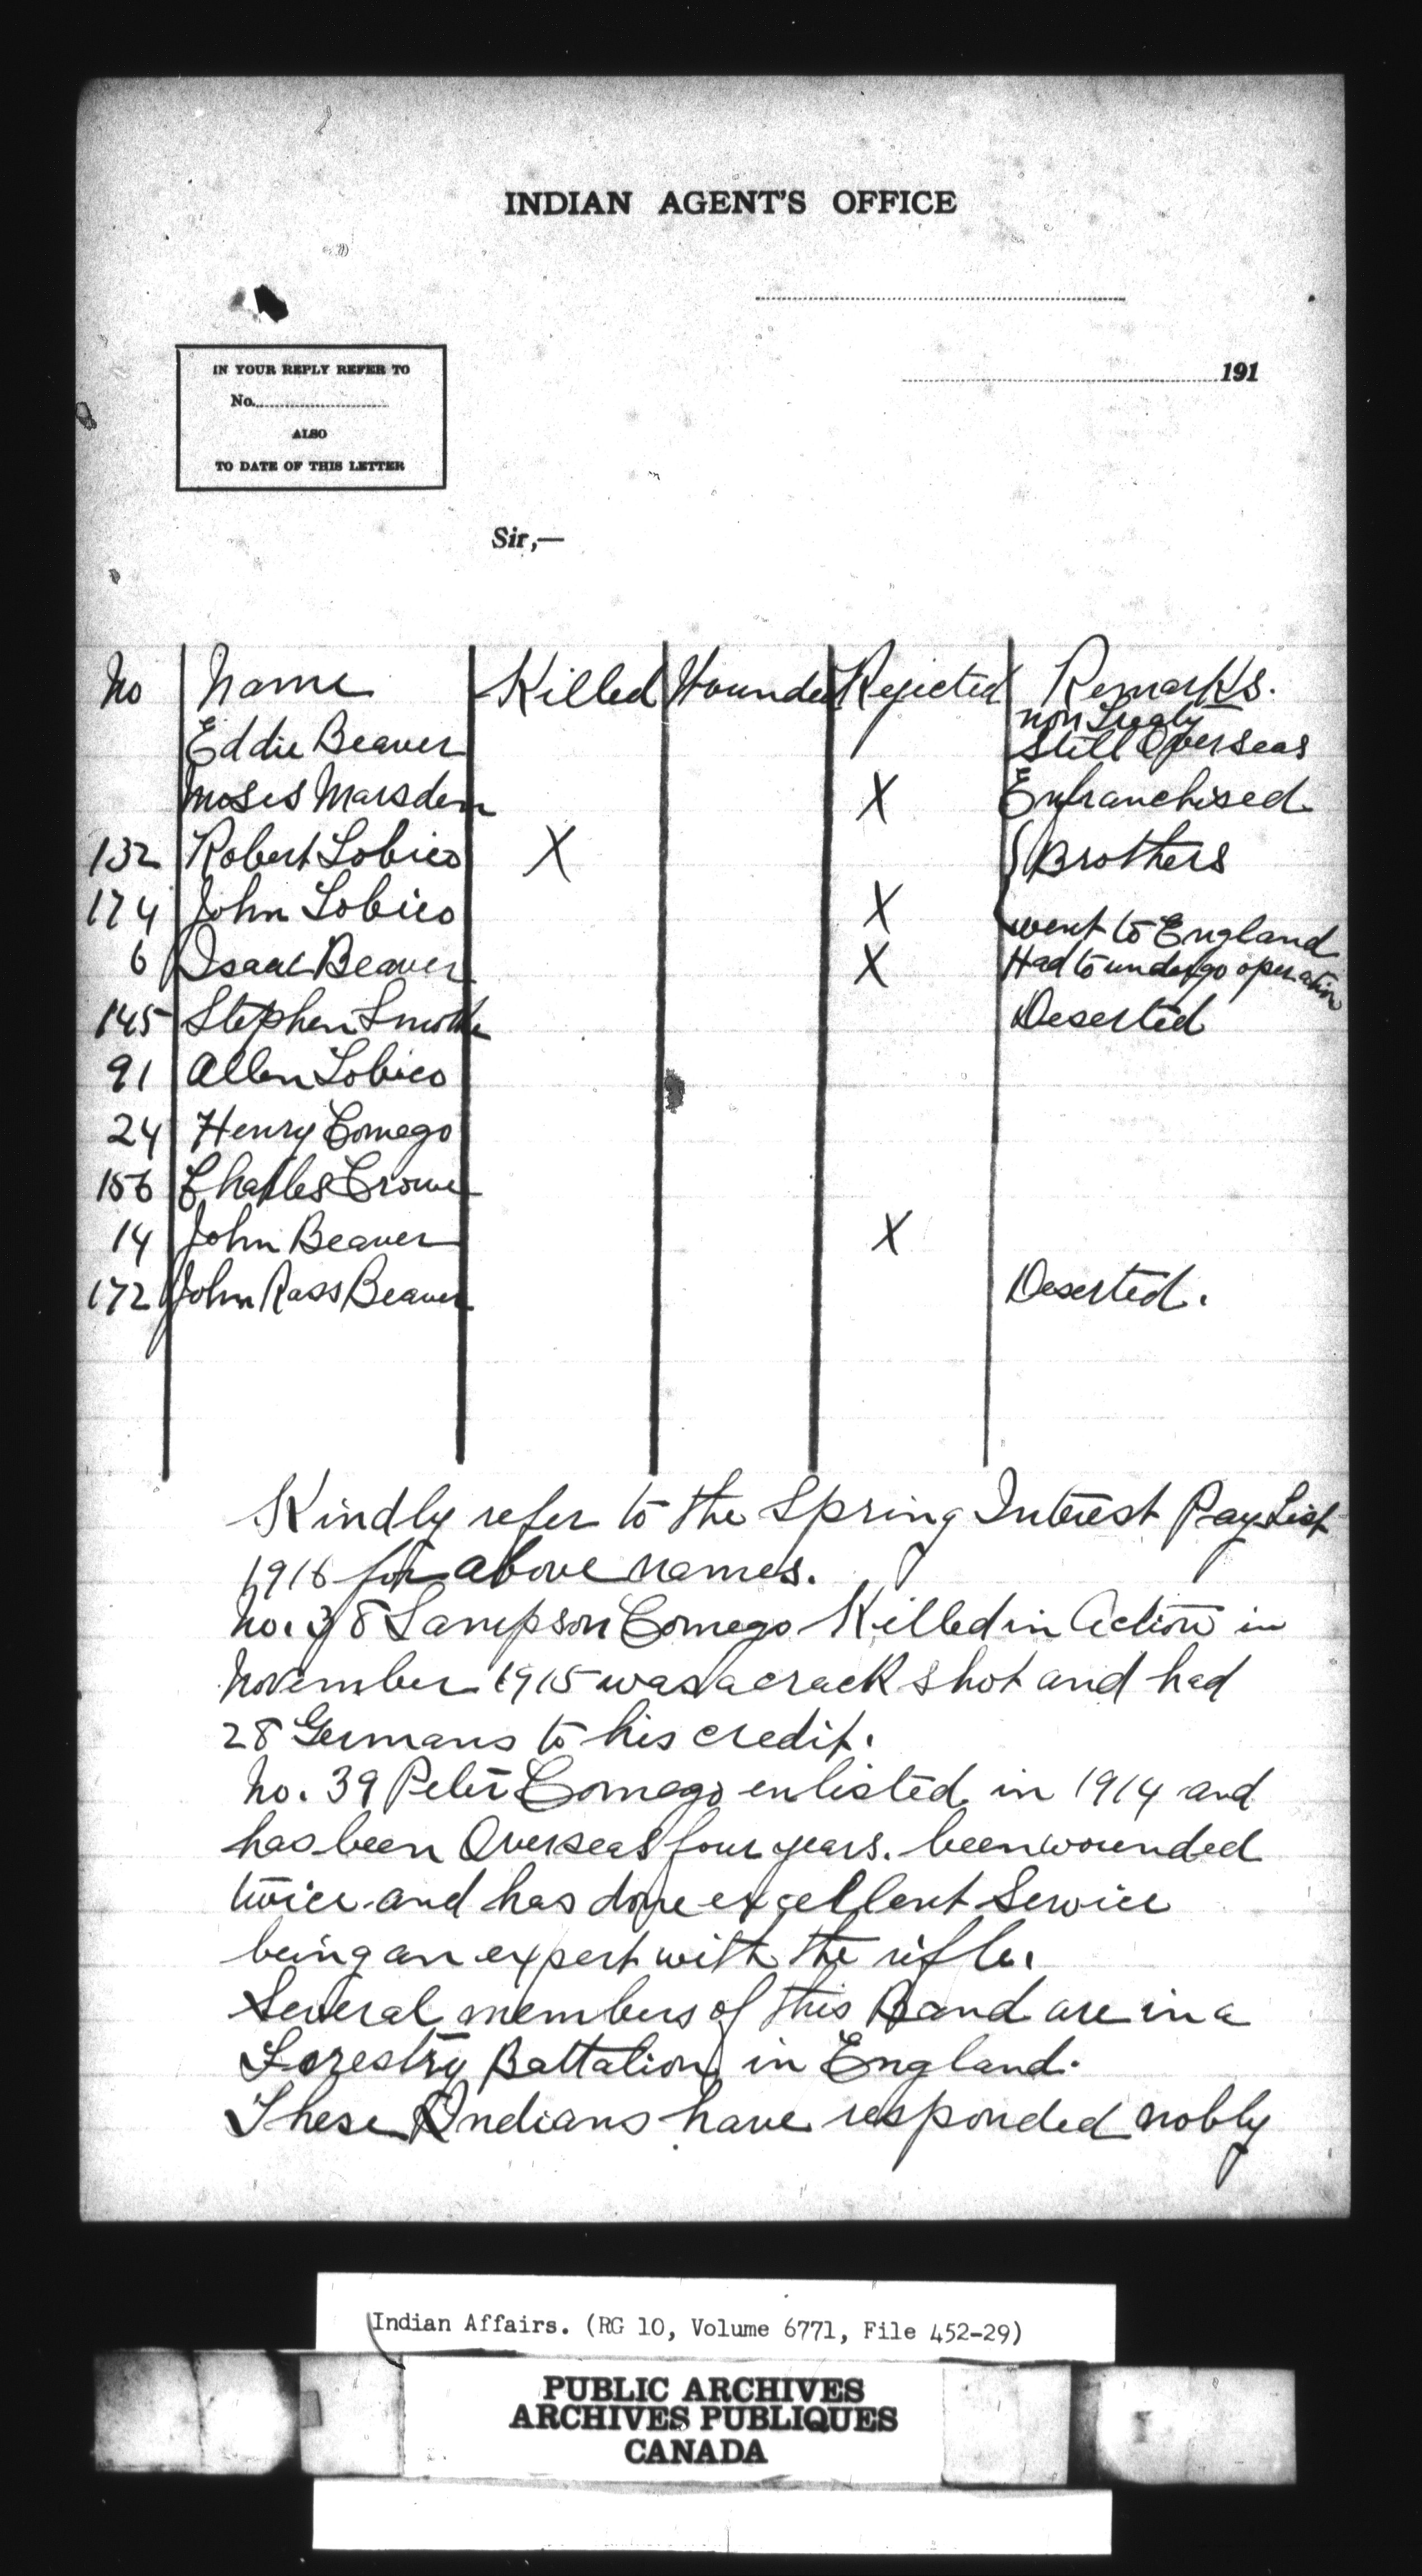 INDIAN AGENT'S OFFICE
191
IN YOUR REPLY REFER TO
No.
ALSO
TO DATE OF THIS LETTER
Sir,—
No Name Killed Wounded Rejected Remarks.
non Treaty
Eddie Beaver Still Overseas
Moses Marsden X Enfranchised
132 Robert Lobico X Brothers
174 John Lobico X went to England
6 Isaac Beaver X Had to undergo operation
145 Stephen Smoke Deserted
91 Allen Lobico
24 Henry Comego
156 Charles Crowe
14 John Beaver X
172 John Rass Beaver Deserted.
Kindly refer to the Spring Interest Pay List
1918 for above names.
No. 38 Sampson Comego Killed in Action in
November 1915 was a crack shot and had
28 Germans to his credit.
No. 39 Peter Comego enlisted in 1914 and
has been Overseas four years. been wounded
twice and has done excellent Service
being an expert with the rifle.
Several members of this Band are in a
Forestry Battalion in England.
These Indians have responded nobly
Indian Affairs. (RG 10, Volume 6771, File 452-29)
PUBLIC ARCHIVES
ARCHIVES PUBLIQUES
CANADA